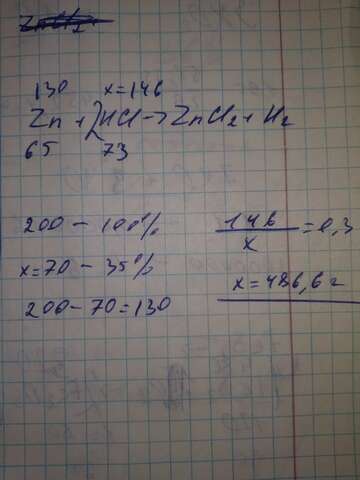 130 x=146
Zn + 2HCl -> ZnCl2 + H2
65 73
200 - 100%
x=70 - 35%
200-70=130
146/x = 0,3
x=486,6 г